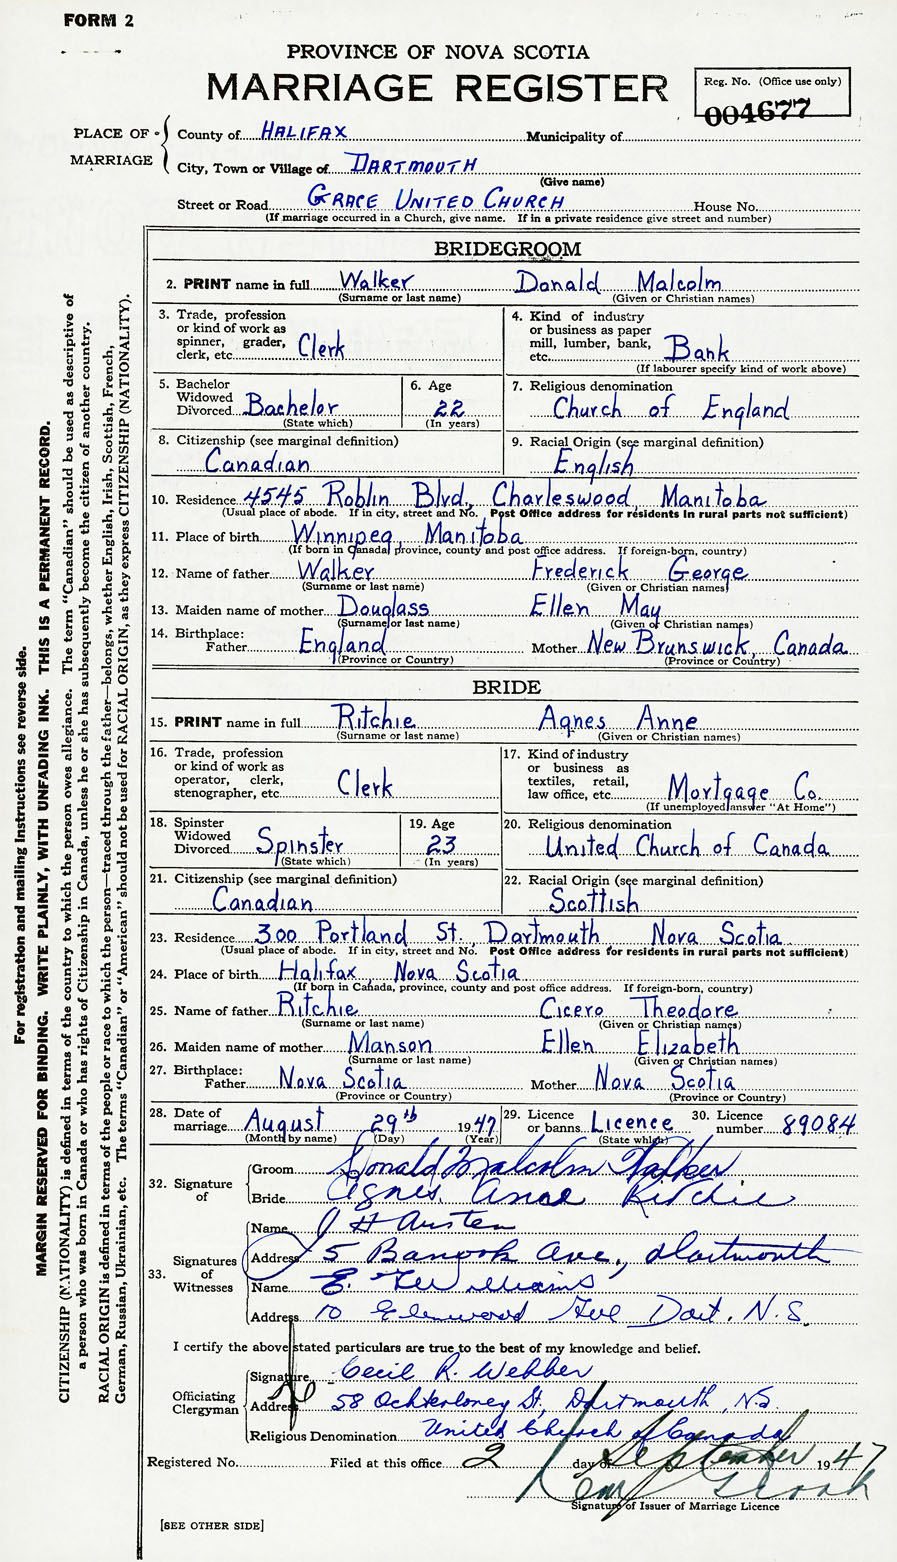 FORM 2
PROVINCE OF NOVA SCOTIA
MARRIAGE REGISTER
Reg. No. (Office use only)
004677
PLACE OF MARRIAGE
County of HALIFAX Municipality of
City, Town or Village of DARTMOUTH
(Give name)
Street or Road GRACE UNITED CHURCH House No.
(If marriage occurred in a Church, give name. If in a private residence give street and number)
BRIDEGROOM
2. PRINT name in full Walker Donald Malcolm
(Surname or last name) (Given or Christian names)
3. Trade, profession or kind of work as spinner, grader, clerk, etc. Clerk
4. Kind of industry or business as paper mill, lumber, bank, etc. Bank
(If labourer specify kind of work above)
5. Bachelor Widowed Divorced Bachelor
(State which)
6. Age 22
(In years)
7. Religious denomination
Church of England
8. Citizenship (see marginal definition)
Canadian
9. Racial Origin (see marginal definition)
English
10. Residence 4545 Roblin Blvd, Charleswood, Manitoba
(Usual place of abode. If in city, street and No. Post Office address for residents in rural parts not sufficient)
11. Place of birth Winnipeg, Manitoba
(If born in Canada, province, county and post office address. If foreign-born, country)
12. Name of father Walker Frederick George
(Surname or last name) (Given or Christian names)
13. Maiden name of mother Douglass Ellen May
(Surname or last name) (Given or Christian names)
14. Birthplace: Father England Mother New Brunswick, Canada
(Province or Country) (Province or Country)
BRIDE
15. PRINT name in full Ritchie Agnes Anne
(Surname or last name) (Given or Christian names)
16. Trade, profession or kind of work as operator, clerk, stenographer, etc. Clerk
17. Kind of industry or business as textiles, retail, law office, etc. Mortgage Co.
(If unemployed answer "At Home")
18. Spinster Widowed Divorced Spinster
(State which)
19. Age 23
(In years)
20. Religious denomination
United Church of Canada
21. Citizenship (see marginal definition)
Canadian
22. Racial Origin (see marginal definition)
Scottish
23. Residence 300 Portland St., Dartmouth Nova Scotia
(Usual place of abode. If in city, street and No. Post Office address for residents in rural parts not sufficient)
24. Place of birth Halifax, Nova Scotia
(If born in Canada, province, county and post office address. If foreign-born, country)
25. Name of father Ritchie Cicero Theodore
(Surname or last name) (Given or Christian names)
26. Maiden name of mother Manson Ellen Elizabeth
(Surname or last name) (Given or Christian names)
27. Birthplace: Father Nova Scotia Mother Nova Scotia
(Province or Country) (Province or Country)
28. Date of marriage August 29th 1947
(Month by name) (Day) (Year)
29. Licence or banns Licence
(State which)
30. Licence number 89084
32. Signature of
Groom Donald Malcolm Walker
Bride Agnes Anne Ritchie
33. Signatures of Witnesses
Name J H Austen
Address 5 Banook Ave., Dartmouth
Name E. Williams
Address 10 Glenwood Ave Dart. N.S.
I certify the above stated particulars are true to the best of my knowledge and belief.
Officiating Clergyman
Signature Cecil R. Webber
Address 58 Ochterloney St., Dartmouth, N.S.
Religious Denomination United Church of Canada
Registered No. Filed at this office 2 day of September 1947
Signature of Issuer of Marriage Licence
[SEE OTHER SIDE]
For registration and mailing instructions see reverse side.
MARGIN RESERVED FOR BINDING. WRITE PLAINLY, WITH UNFADING INK. THIS IS A PERMANENT RECORD.
CITIZENSHIP (NATIONALITY) is defined in terms of the country to which the person owes allegiance. The term "Canadian" should be used as descriptive of
a person who was born in Canada or who has rights of Citizenship in Canada, unless he or she has subsequently become the citizen of another country.
RACIAL ORIGIN is defined in terms of the people or race to which the person—traced through the father—belongs, whether English, Irish, Scottish, French,
German, Russian, Ukrainian, etc. The terms "Canadian" or "American" should not be used for RACIAL ORIGIN, as they express CITIZENSHIP (NATIONALITY).